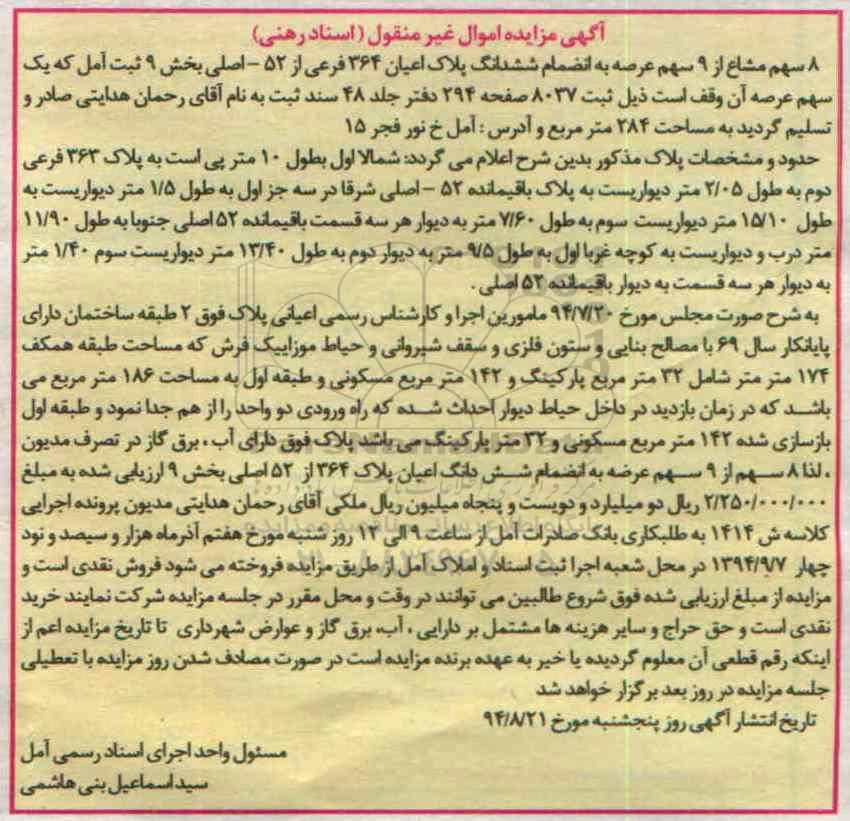 آگهی مزایده اموال غیر منقول (اسناد رهنی)
۸ سهم مشاع از ۹ سهم عرصه به انضمام ششدانگ پلاک اعیان ۳۶۴ فرعی از ۵۲ – اصلی بخش ۹ ثبت آمل که یک
سهم عرصه آن وقف است ذیل ثبت ۸۰۳۷ صفحه ۲۹۴ دفتر جلد ۴۸ سند ثبت به نام آقای رحمان هدایتی صادر و
تسلیم گردید به مساحت ۲۸۴ متر مربع و آدرس : آمل خ نور فجر ۱۵
حدود و مشخصات پلاک مذکور بدین شرح اعلام می گردد: شمالا اول بطول ۱۰ متر پی است به پلاک ۳۶۳ فرعی
دوم به طول ۲/۰۵ متر دیواریست به پلاک باقیمانده ۵۲ – اصلی شرقا در سه جز اول به طول ۱/۵ متر دیواریست به
طول ۱۵/۱۰ متر دیواریست سوم به طول ۷/۶۰ متر به دیوار هر سه قسمت باقیمانده ۵۲ اصلی جنوبا به طول ۱۱/۹۰
متر درب و دیواریست به کوچه غربا اول به طول ۹/۵ متر به دیوار دوم به طول ۱۳/۴۰ متر دیواریست سوم ۱/۴۰ متر
به دیوار هر سه قسمت به دیوار باقیمانده ۵۲ اصلی .
به شرح صورت مجلس مورخ ۹۴/۷/۲۰ مامورین اجرا و کارشناس رسمی اعیانی پلاک فوق ۲ طبقه ساختمان دارای
پایانکار سال ۶۹ با مصالح بنایی و ستون فلزی و سقف شیروانی و حیاط موزاییک فرش که مساحت طبقه همکف
۱۷۴ متر متر شامل ۳۲ متر مربع پارکینگ و ۱۴۲ متر مربع مسکونی و طبقه اول به مساحت ۱۸۶ متر مربع می
باشد که در زمان بازدید در داخل حیاط دیوار احداث شده که راه ورودی دو واحد را از هم جدا نمود و طبقه اول
بازسازی شده ۱۴۲ متر مربع مسکونی و ۳۲ متر پارکینگ می باشد پلاک فوق دارای آب ، برق گاز در تصرف مدیون
، لذا ۸ سهم از ۹ سهم عرضه به انضمام شش دانگ اعیان پلاک ۳۶۴ از ۵۲ اصلی بخش ۹ ارزیابی شده به مبلغ
۲/۲۵۰/۰۰۰/۰۰۰ ریال دو میلیارد و دویست و پنجاه میلیون ریال ملکی آقای رحمان هدایتی مدیون پرونده اجرایی
کلاسه ش ۱۴۱۴ به طلبکاری بانک صادرات آمل از ساعت ۹ الی ۱۲ روز شنبه مورخ هفتم آذرماه هزار و سیصد و نود
چهار ۱۳۹۴/۹/۷ در محل شعبه اجرا ثبت اسناد و املاک آمل از طریق مزایده فروخته می شود فروش نقدی است و
مزایده از مبلغ ارزیابی شده فوق شروع طالبین می توانند در وقت و محل مقرر در جلسه مزایده شرکت نمایند خرید
نقدی است و حق حراج و سایر هزینه ها مشتمل بر دارایی ، آب، برق گاز و عوارض شهرداری تا تاریخ مزایده اعم از
اینکه رقم قطعی آن معلوم گردیده یا خیر به عهده برنده مزایده است در صورت مصادف شدن روز مزایده با تعطیلی
جلسه مزایده در روز بعد برگزار خواهد شد
تاریخ انتشار آگهی روز پنجشنبه مورخ ۹۴/۸/۲۱
مسئول واحد اجرای اسناد رسمی آمل
سید اسماعیل بنی هاشمی